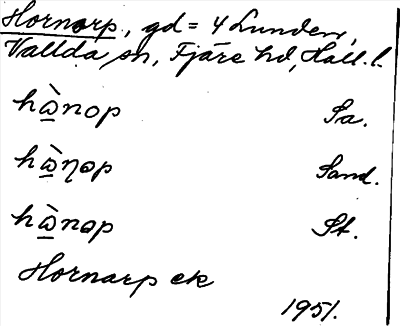 Hornarp, gd = 4 Lunden,
Vallda sn, Fjäre hd, Hall. l.
hὼ̲nop Sa.
hὼ̲ɳəp Sand.
hὼ̲nəp St.
Hornarp ek
1951.